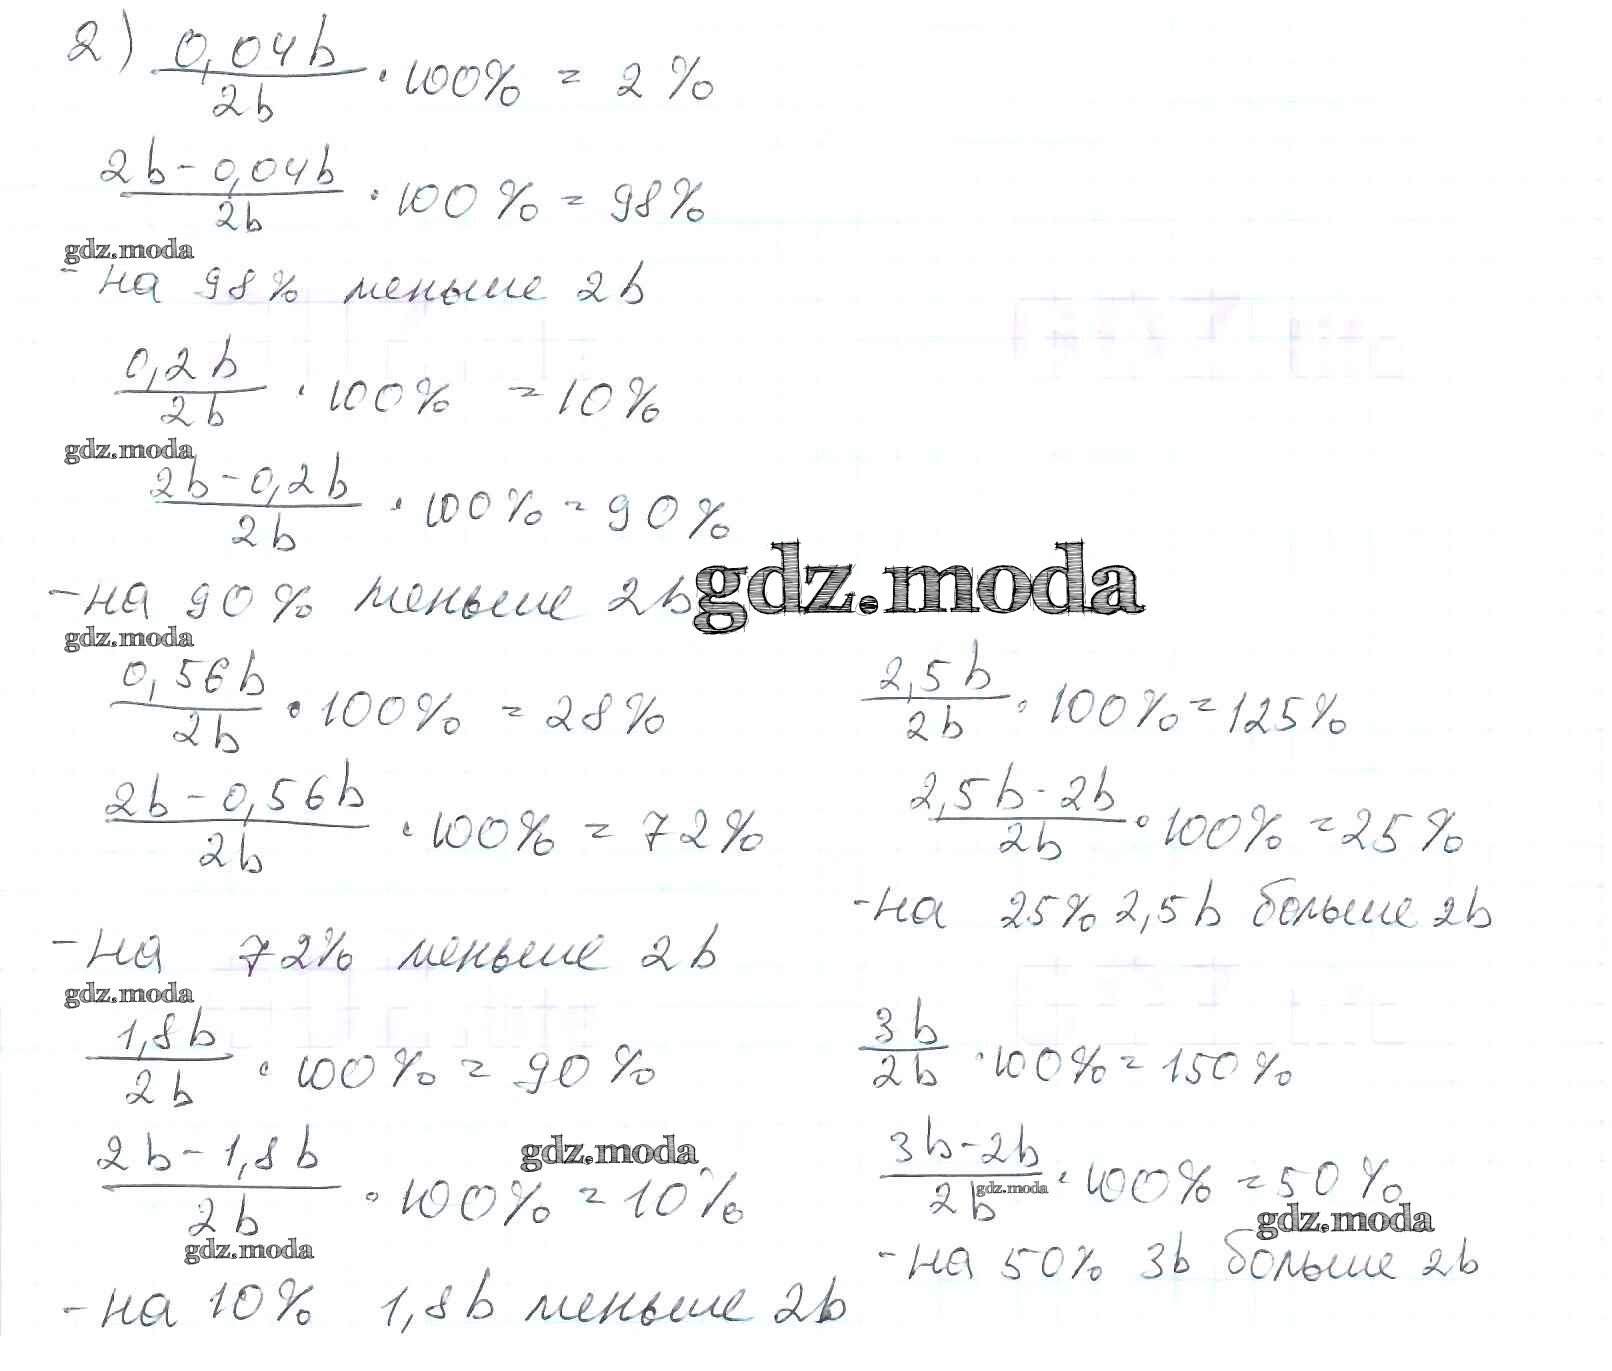 2) 0,04b/2b · 100% = 2%
(2b - 0,04b)/2b · 100% = 98%
gdz.moda
- на 98% меньше 2b
0,2b/2b · 100% = 10%
gdz.moda
(2b - 0,2b)/2b · 100% = 90%
- на 90% меньше 2b
gdz.moda
gdz.moda
0,56b/2b · 100% = 28%
(2b - 0,56b)/2b · 100% = 72%
- на 72% меньше 2b
gdz.moda
1,8b/2b · 100% = 90%
(2b - 1,8b)/2b · 100% = 10%
gdz.moda
gdz.moda
- на 10% 1,8b меньше 2b
2,5b/2b · 100% = 125%
(2,5b - 2b)/2b · 100% = 25%
- на 25% 2,5b больше 2b
3b/2b · 100% = 150%
(3b - 2b)/2b · 100% = 50%
gdz.moda
gdz.moda
- на 50% 3b больше 2b